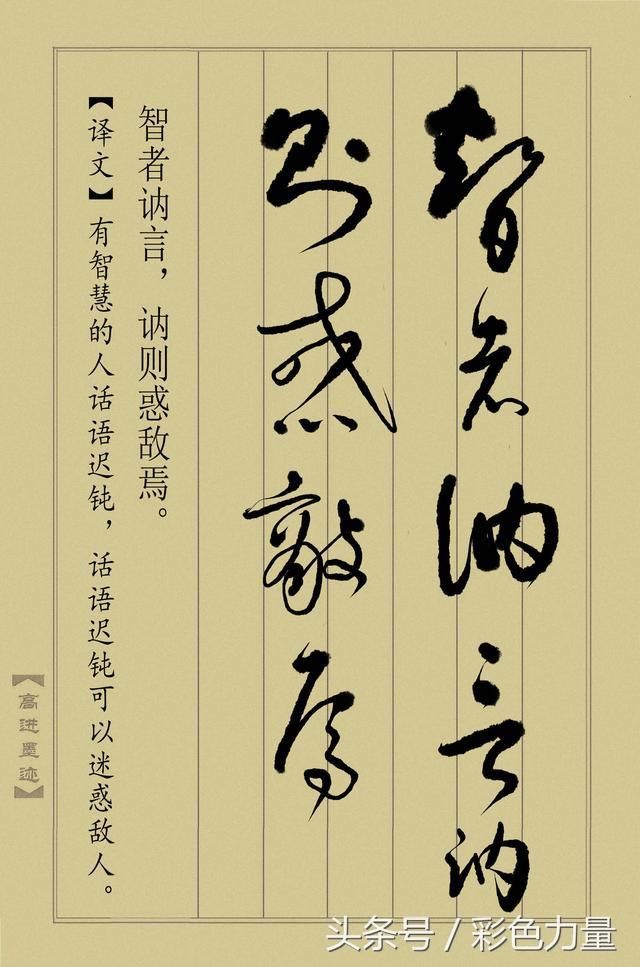 智者讷言讷
则惑敌焉
智者讷言，讷则惑敌焉。
【译文】有智慧的人话语迟钝，话语迟钝可以迷惑敌人。
【高进墨迹】
头条号 / 彩色力量